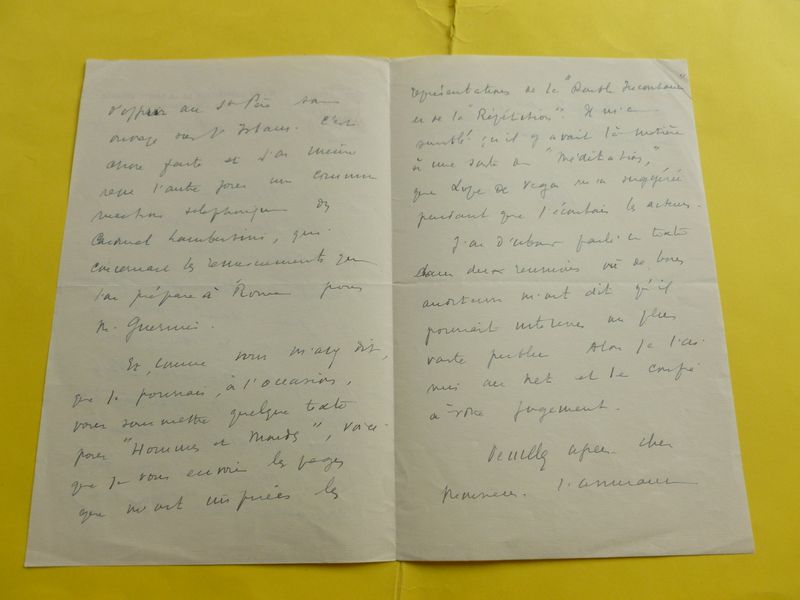 d'offrir au St Père son
ouvrage sur l'Islam. C'est
chose faite et j'ai même
reçu l'autre jour un commu
nication téléphonique du
Cardinal Lambertini, qui
concernait les remerciements que
l'on prépare à Rome pour
M. Guermi.
Et, comme vous m'avez dit,
que je pourrais, à l'occasion,
vous soumettre quelque texte
pour "Hommes et Mondes", voici
que je vous envoie les pages
que m'ont inspirées les
représentations de la "Double Inconstance"
et de la "Répétition". Il m'a
semblé qu'il y avait là matière
à une sorte de "Méditation,"
que Lope de Vega m'a suggérée
pendant que j'écoutais les acteurs.
J'ai d'abord parlé ce texte
dans deux réunions où de bons
auditeurs m'ont dit qu'il
pourrait intéresser un plus
vaste public. Alors je l'ai
mis au net et le confie
à votre jugement.
Veuillez agréer cher
Monsieur, l'assurance